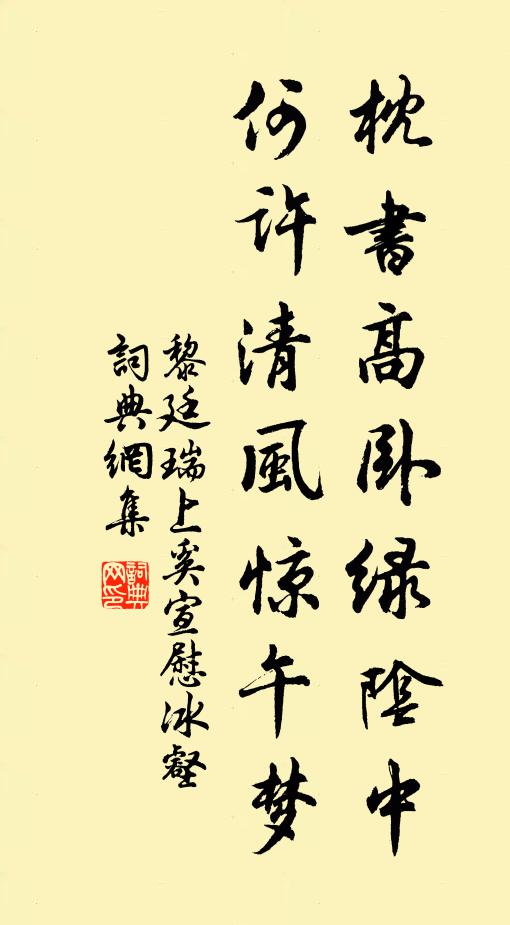 枕書高卧緑陰中
何許清風惊午梦
黎廷瑞上奚宣慰冰壑
詞典網集
詞典网印